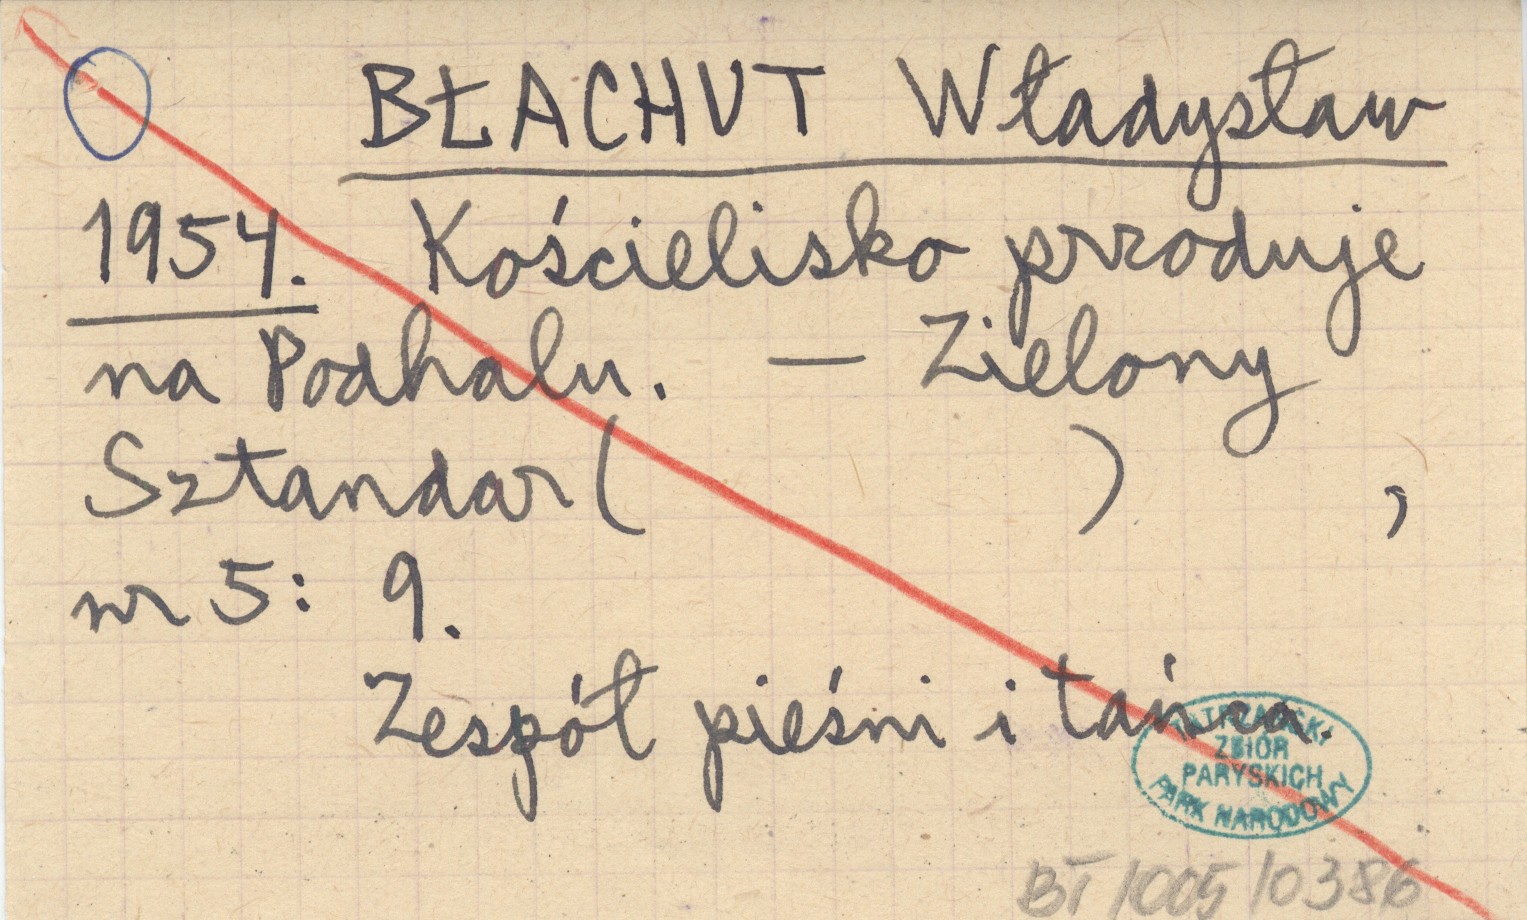 BŁACHUT Władysław
1954. Kościelisko przoduje
na Podhalu. — Zielony
Sztandar ( ) ,
nr 5: 9.
Zespół pieśni i tańca.
TATRZAŃSKI
ZBIÓR
PARYSKICH
PARK NARODOWY
BŁ/005/0386